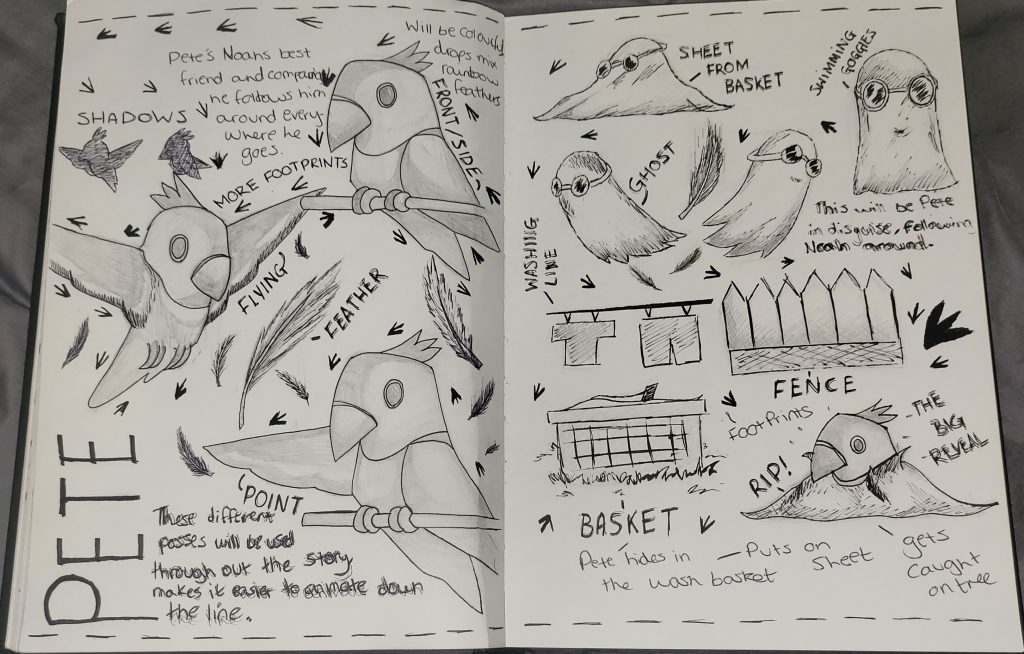 Pete's Noahs best
friend and companion
he follows him
around every
where he
goes.
Will be colourful
drops mix
rainbow
feathers
SHADOWS
FRONT/SIDE
MORE FOOTPRINTS
FLYING
FEATHER
PETE
POINT
These different
posses will be used
through out the story
makes it easier to animate down
the line.
SHEET
FROM
BASKET
SWIMMING
GOGGIES
GHOST
This will be Pete
in disguise, following
Noah around.
WASHING
LINE
FENCE
FOOTPRINTS
THE
BIG
REVEAL
RIP!
BASKET
Pete hides in
the wash basket
Puts on
sheet
gets
caught
on tree